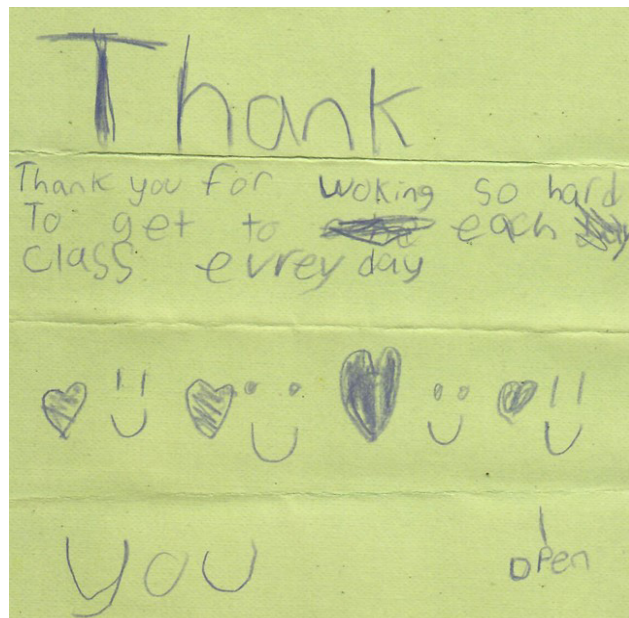 Thank
Thank you for woking so hard
To get to each
class evrey day
you
open